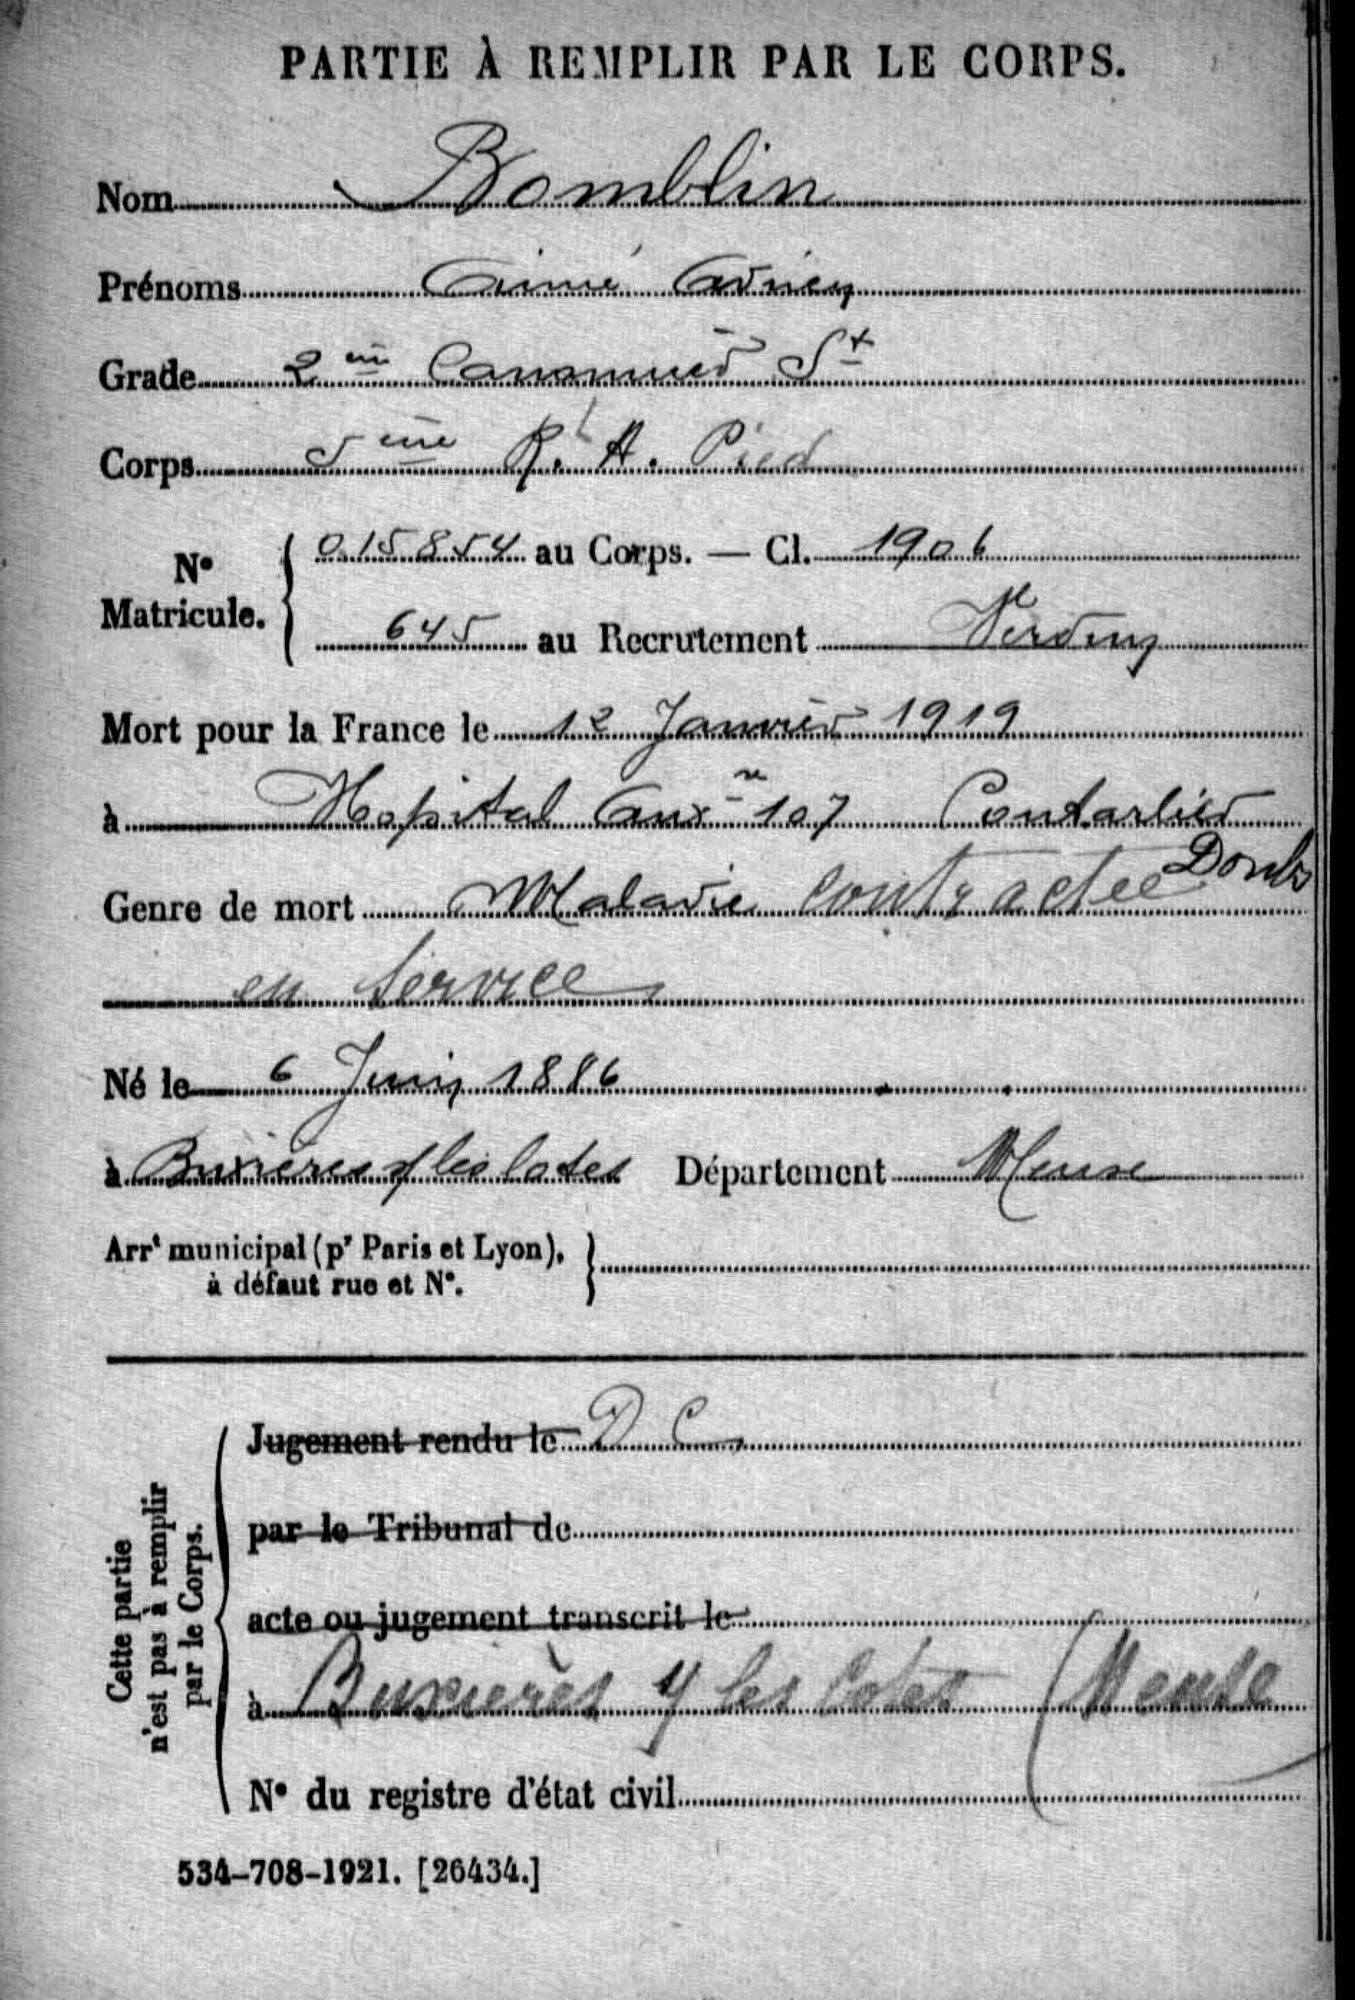 PARTIE À REMPLIR PAR LE CORPS.
Nom Bomblin
Prénoms Aimé Adrien
Grade 2me Canonnier St
Corps 5ème R. A. Pied
No Matricule. { 015854 au Corps. — Cl. 1906
645 au Recrutement Verdun
Mort pour la France le 12 Janvier 1919
à Hopital Auxre 107 Pontarlier
Doubs
Genre de mort Maladie contractée
en service
Né le 6 Juin 1886
à Buxières s/ les Cotes Département Meuse
Arrt municipal (pr Paris et Lyon), }
à défaut rue et No.
Cette partie
n'est pas à remplir
par le Corps.
Jugement rendu le D C
par le Tribunal de
acte ou jugement transcrit le
à Buxières s/ les Cotes (Meuse
No du registre d'état civil
534-708-1921. [26434.]